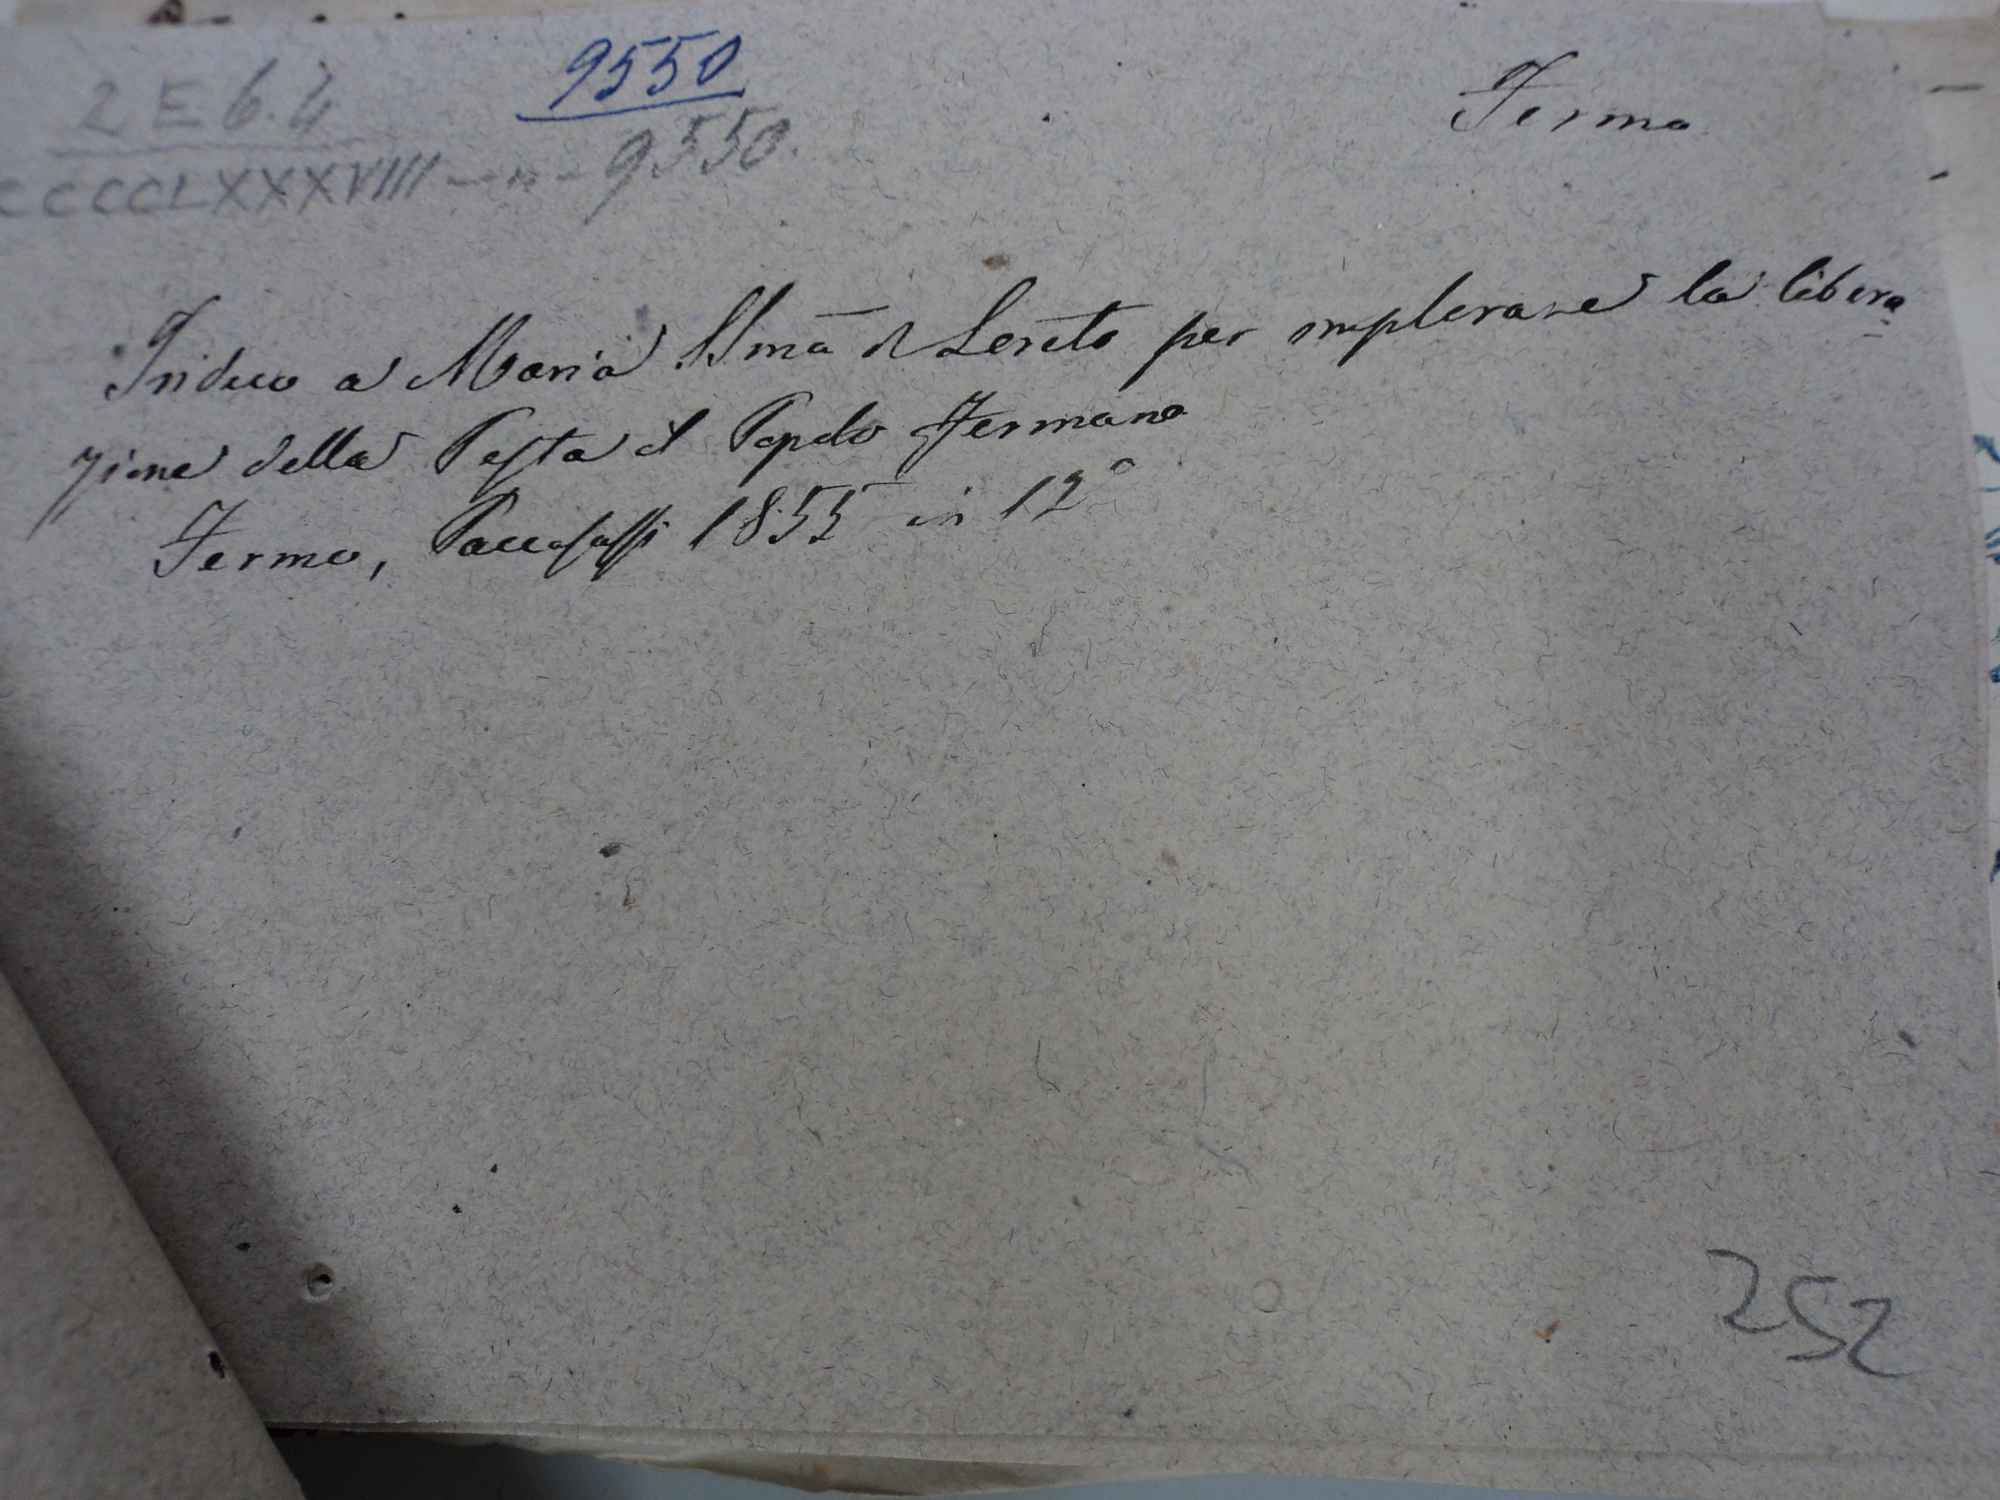 9550
2 E 6.4
CCCCCLXXXVIII — n - 9550.
Fermo
Triduo a Maria SSmā di Loreto per implorare la libera=
zione della Peste il Popolo Fermano
Fermo, Paccasassi 1855 in 12°
252